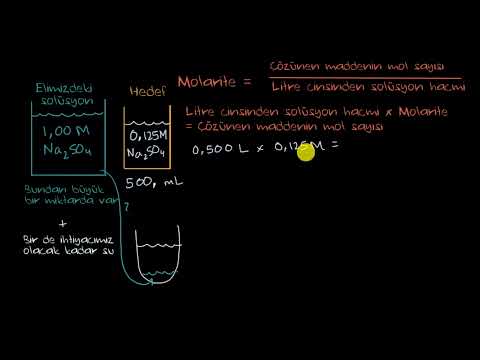 Elimizdeki
solüsyon
1,00 M
Na₂SO₄
Bundan büyük
bir miktarda var
+
Bir de ihtiyacımız
olacak kadar su
Hedef
0,125M
Na₂SO₄
500, mL
?
Molarite =
Çözünen maddenin mol sayısı
Litre cinsinden solüsyon hacmi
Litre cinsinden solüsyon hacmi × Molarite
= Çözünen maddenin mol sayısı
0,500 L × 0,125M =